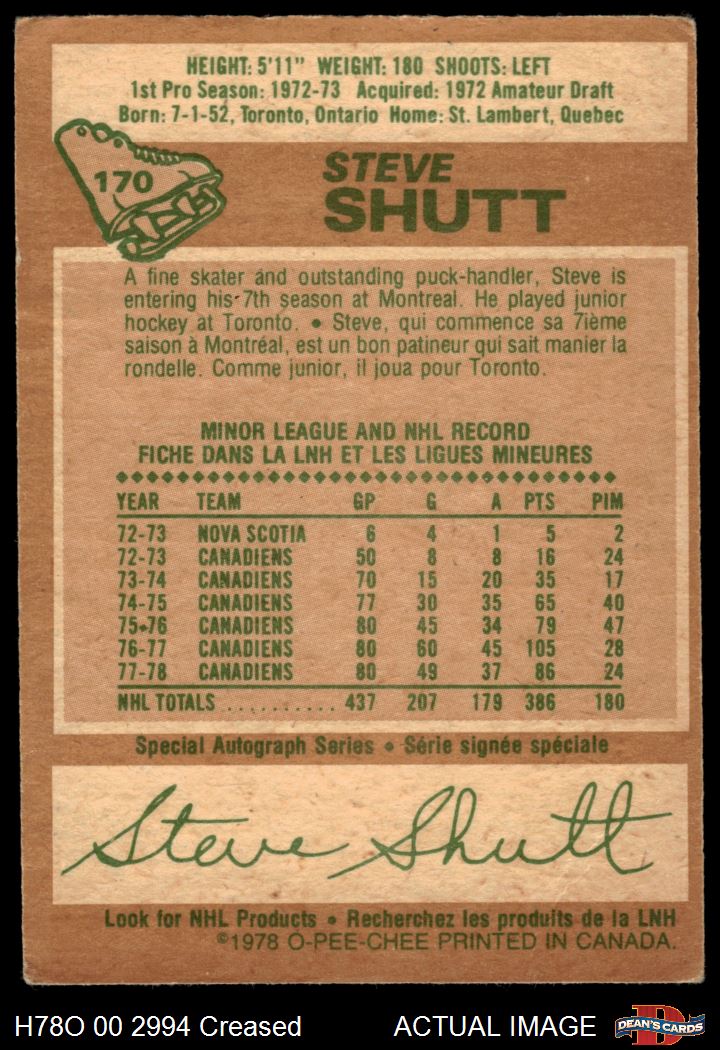 HEIGHT: 5'11" WEIGHT: 180 SHOOTS: LEFT
1st Pro Season: 1972-73 Acquired: 1972 Amateur Draft
Born: 7-1-52, Toronto, Ontario Home: St. Lambert, Quebec
170
STEVE
SHUTT
A fine skater and outstanding puck-handler, Steve is
entering his 7th season at Montreal. He played junior
hockey at Toronto. • Steve, qui commence sa 7ième
saison à Montréal, est un bon patineur qui sait manier la
rondelle. Comme junior, il joua pour Toronto.
MINOR LEAGUE AND NHL RECORD
FICHE DANS LA LNH ET LES LIGUES MINEURES
YEAR TEAM GP G A PTS PIM
72-73 NOVA SCOTIA 6 4 1 5 2
72-73 CANADIENS 50 8 8 16 24
73-74 CANADIENS 70 15 20 35 17
74-75 CANADIENS 77 30 35 65 40
75-76 CANADIENS 80 45 34 79 47
76-77 CANADIENS 80 60 45 105 28
77-78 CANADIENS 80 49 37 86 24
NHL TOTALS .......... 437 207 179 386 180
Special Autograph Series • Série signée spéciale
Steve Shutt
Look for NHL Products • Recherchez les produits de la LNH
©1978 O-PEE-CHEE PRINTED IN CANADA.
H78O 00 2994 Creased ACTUAL IMAGE
DEAN'S CARDS